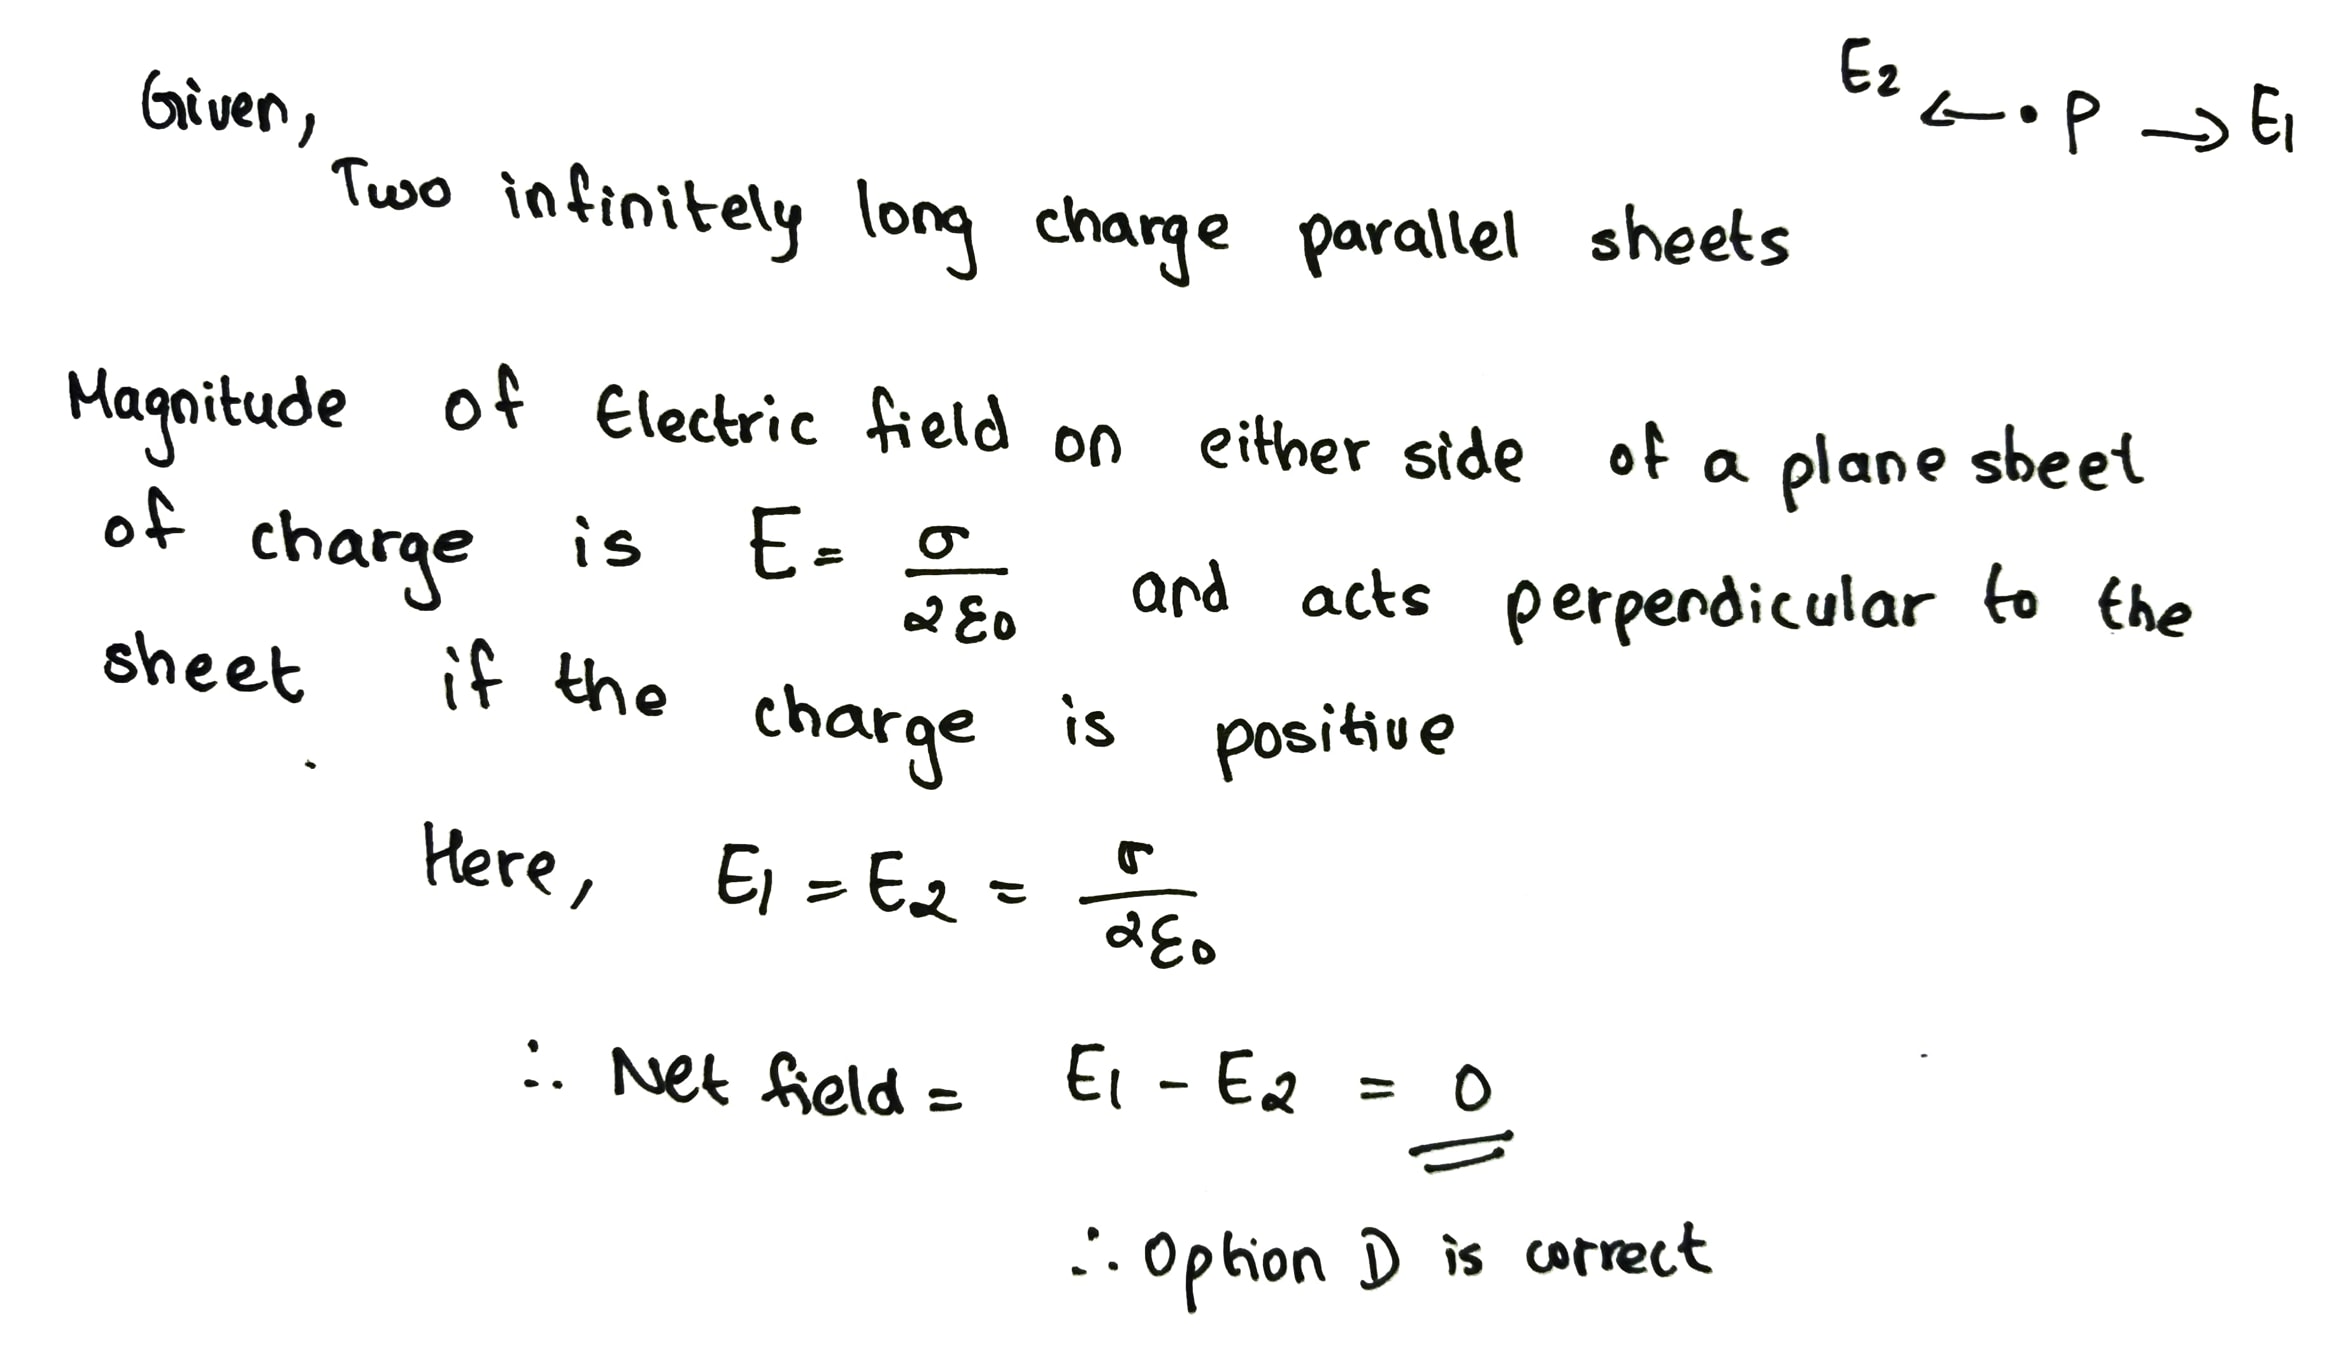 Given,
E2 ← • P → E1
Two infinitely long charge parallel sheets
Magnitude of Electric field on either side of a plane sheet
of charge is E = σ/2ε0 and acts perpendicular to the
sheet if the charge is positive
Here, E1 = E2 = σ/2ε0
∴ Net field = E1 - E2 = 0
∴ Option D is correct